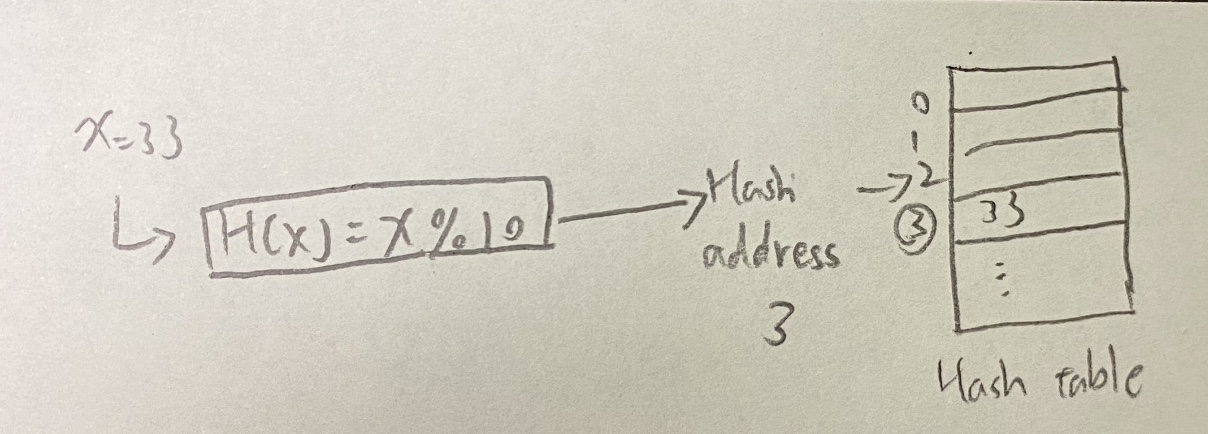 x=33
H(x)=x%10
Hash
address
3
0
1
2
③ 33
⋮
Hash table